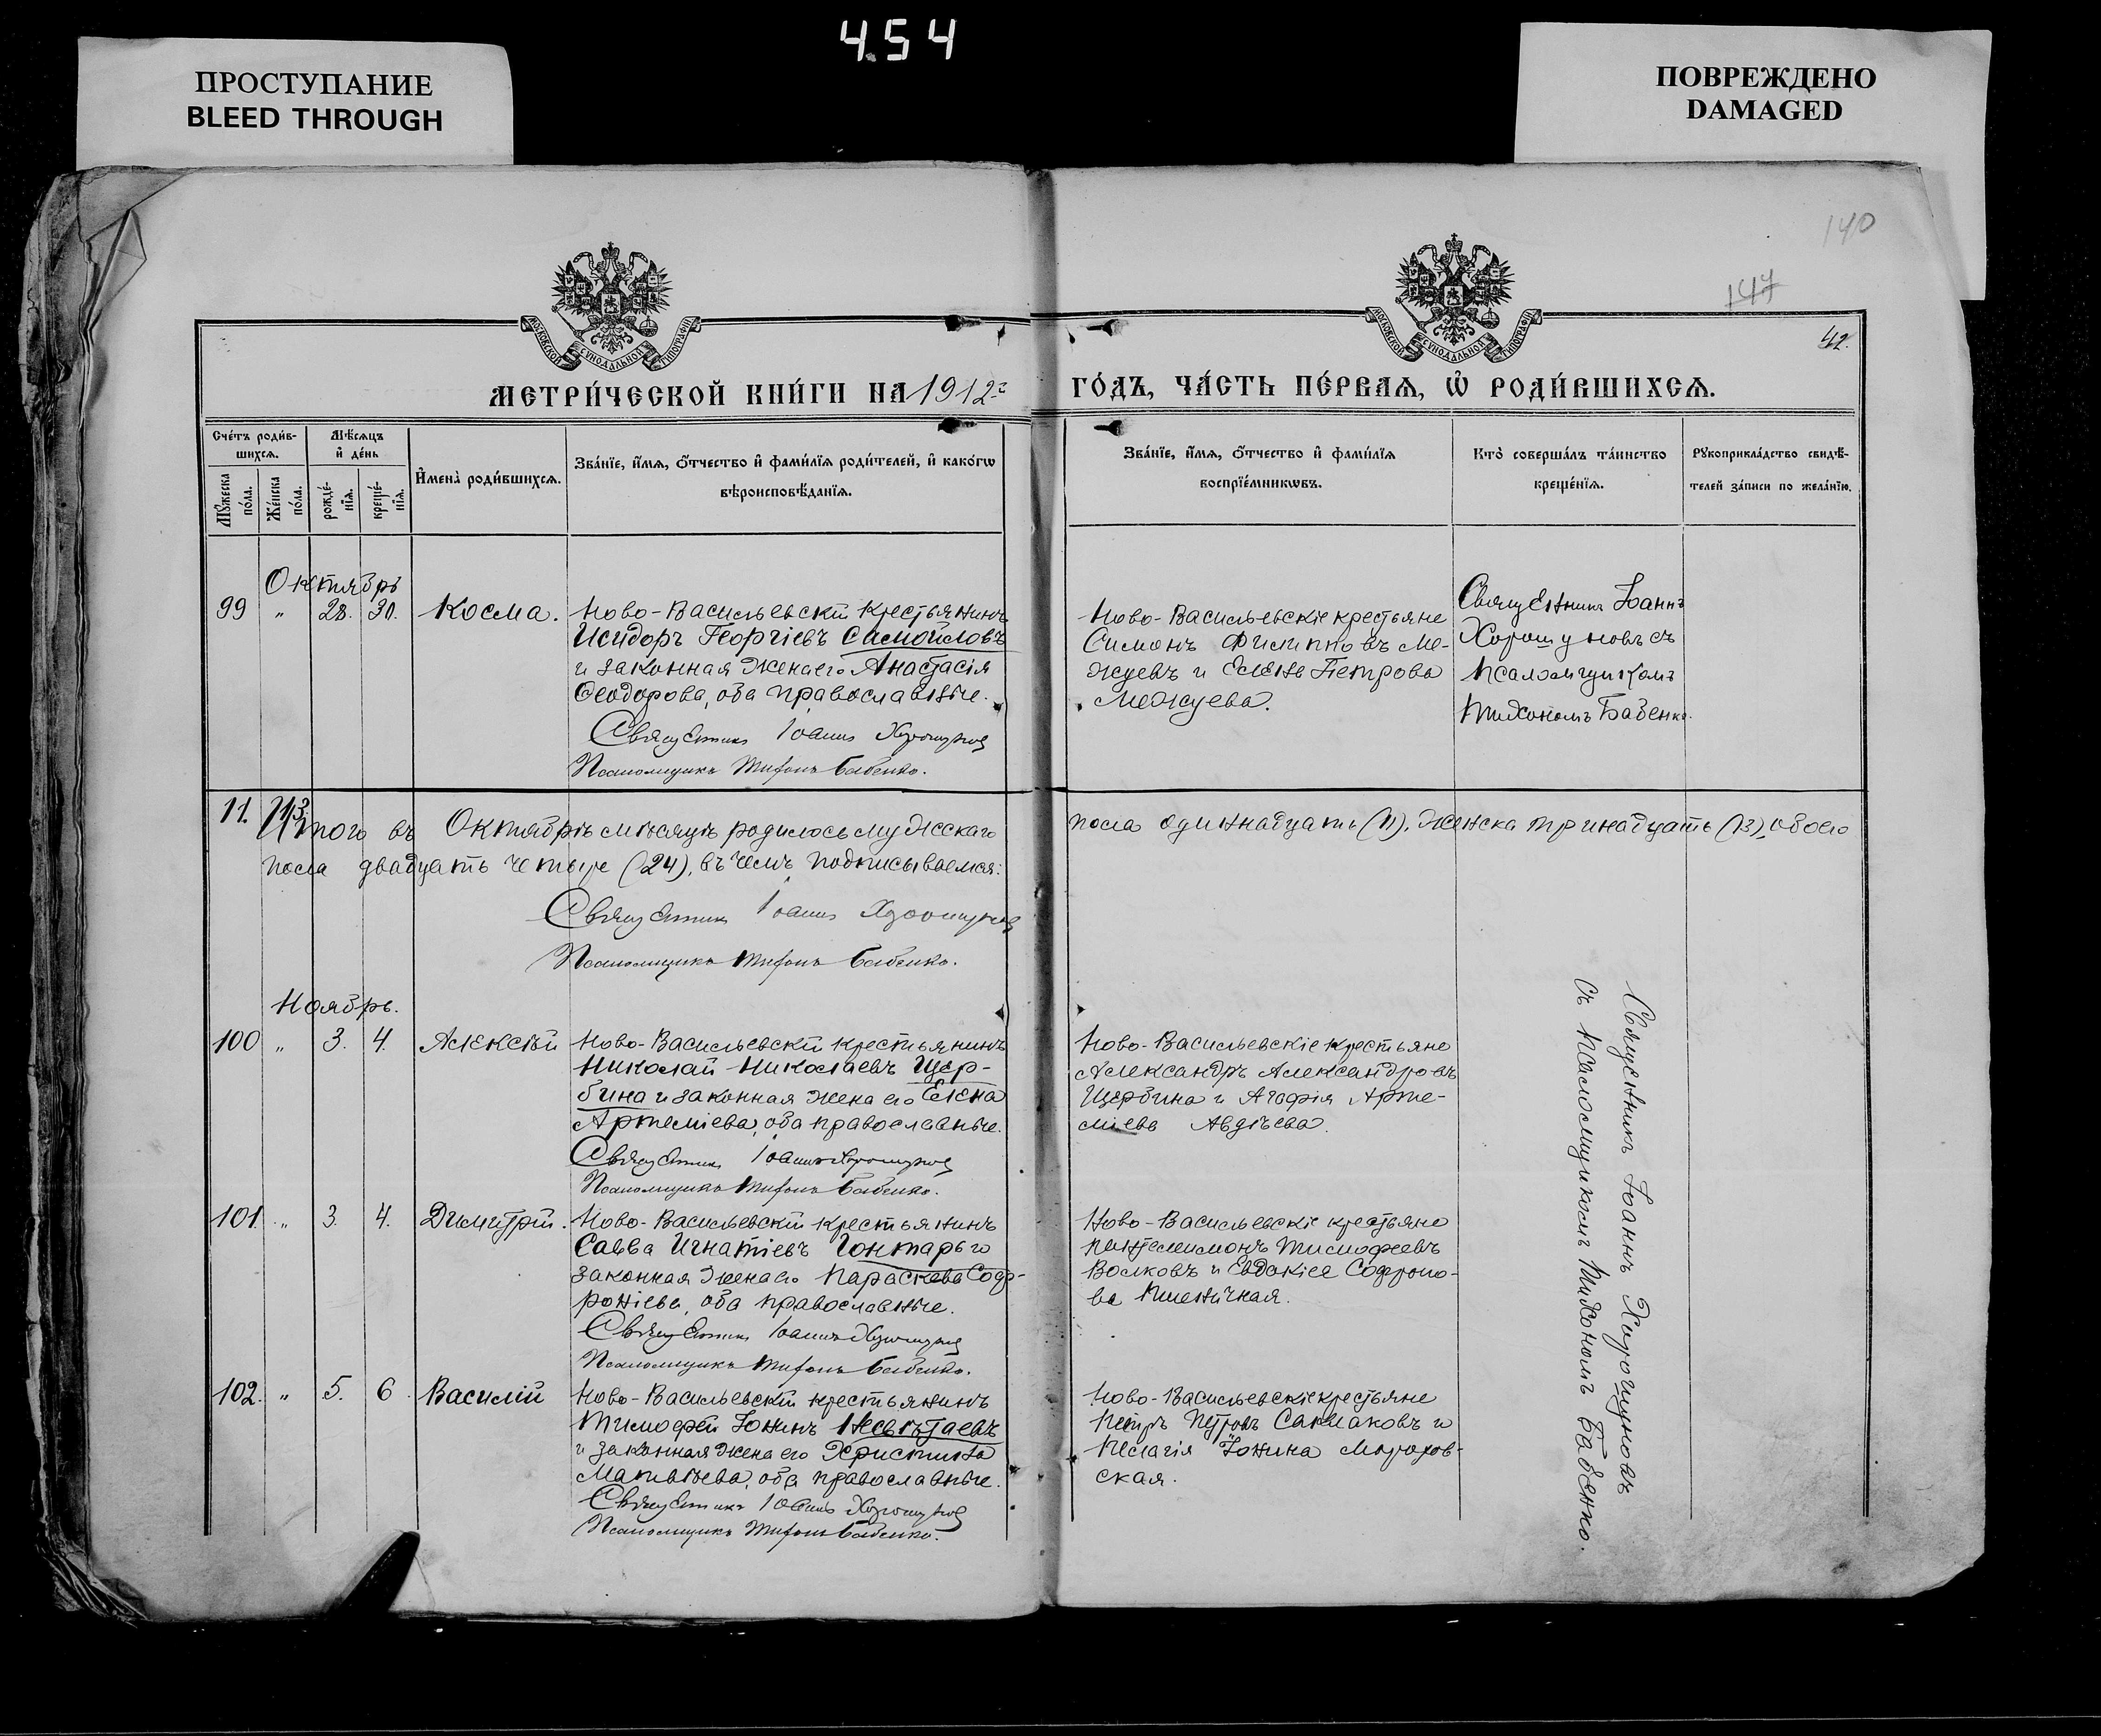 454
ПРОСТУПАНИЕ
BLEED THROUGH
ПОВРЕЖДЕНО
DAMAGED
140
147
42.
МОСКОВСКОЙ СУНОДАЛЬНОЙ ТИПОГРАФІИ
МОСКОВСКОЙ СУНОДАЛЬНОЙ ТИПОГРАФІИ
МЕТРИ́ЧЕСКОЙ КНИ́ГИ НА 1912 г
ГО́ДЪ, ЧА́СТЬ ПЕ́РВАѦ, Ѡ҆ РОДИ́ВШИХСѦ.
Сче́тъ роди́в-
шихсѧ.
Мѣ́сѧцъ
и҆ де́нь
Мꙋ́жеска
по́ла.
Же́нска
по́ла.
рожде́-
нїѧ.
креще́-
нїѧ.
И҆мена̀ роди́вшихсѧ.
Зва́нїе, и҆́мѧ, ѻ҆́тчество и҆ фами́лїѧ роди́телей, и҆ како́гѡ
вѣроисповѣ́данїѧ.
Зва́нїе, и҆́мѧ, ѻ҆́тчество и҆ фами́лїѧ
воспрїе́мникѡвъ.
Кто̀ соверша́лъ та́инство
креще́нїѧ.
Рꙋкоприкла́дство свидѣ́-
телей за́писи по жела́нїю.
Октябрь
99 " 28. 30. Косма.
Ново-Васильевскій крестьянинъ
Исидоръ Георгіевъ Самойловъ
и законная жена его Анастасія
Ѳеодорова, оба православные.
Священникъ Іоаннъ Хорошуновъ
Псаломщикъ Тихонъ Бабенко.
Ново-Васильевскіе крестьяне
Симонъ Филипповъ Ме-
жуевъ и Елена Петрова
Межуева.
Священникъ Іоаннъ
Хорошуновъ съ
псаломщикомъ
Тихономъ Бабенко.
11. 13.
Итого въ Октябрѣ мѣсяцѣ родилось мужскаго
пола одиннадцать (11), женска тринадцать (13), обоего
пола двадцать четыре (24), въ чемъ подписываемся:
Священникъ Іоаннъ Хорошуновъ
Псаломщикъ Тихонъ Бабенко.
Ноябрь.
100 " 3. 4. Алексѣй
Ново-Васильевскій крестьянинъ
Николай Николаевъ Щер-
бина и законная жена его Елена
Артеміева, оба православные.
Священникъ Іоаннъ Хорошуновъ
Псаломщикъ Тихонъ Бабенко.
Ново-Васильевскіе крестьяне
Александръ Александровъ
Щербина и Агафія Арте-
міева Авдѣева.
101. " 3. 4. Димитрій.
Ново-Васильевскій крестьянинъ
Савва Игнатіевъ Гонтарь и
законная жена его Параскева Соф-
роніева, оба православные.
Священникъ Іоаннъ Хорошуновъ
Псаломщикъ Тихонъ Бабенко.
Ново-Васильевскіе крестьяне
Пантелеимонъ Тимофеевъ
Волковъ и Евдокіея Софроно-
ва Пшеничная.
102. " 5. 6. Василій
Ново-Васильевскій крестьянинъ
Тимофей Іонинъ Несвѣтаевъ
и законная жена его Христина
Матвѣева, оба православные.
Священникъ Іоаннъ Хорошуновъ
Псаломщикъ Тихонъ Бабенко.
Ново-Васильевскіе крестьяне
Петръ Петровъ Салмаковъ и
Пелагія Іонина Мороховская.
Священникъ Іоаннъ Хорошуновъ
съ псаломщикомъ Тихономъ Бабенко.